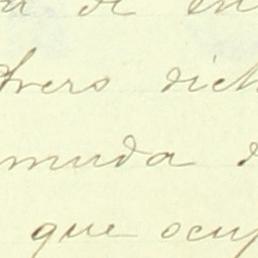 de en
vers dich
muda d
que ocup